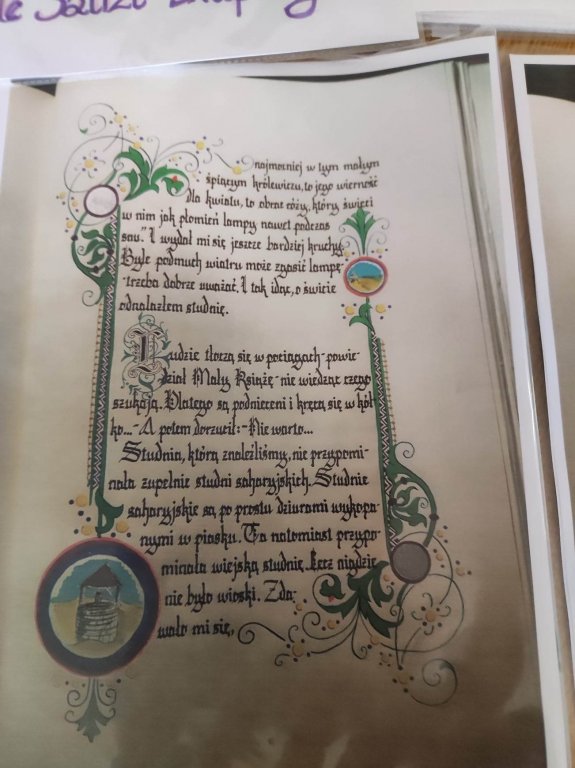 najmocniej w tym małym
śpiącym królewiczu, to jego wierność
dla kwiatu, to obraz róży, który święci
w nim jak płomień lampy nawet podczas
snu." I wydał mi się jeszcze bardziej kruchy.
Byle podmuch wiatru może zgasić lampę-
-trzeba dobrze uważać. I tak idąc, o świcie
odnalazłem studnię.
Ludzie tłoczą się w pociągach-powie-
dział Mały Książę-nie wiedząc czego
szukają. Dlatego są podnieceni i kręcą się w kół-
ko...-A potem dorzucił:-Nie warto...
Studnia, którą znaleźliśmy, nie przypomi-
nała zupełnie studni saharyjskich. Studnie
saharyjskie są po prostu dziurami wykopa-
nymi w piasku. Ta natomiast przypo-
minała wiejską studnię. Lecz nigdzie
nie było wioski. Zda-
wało mi się,